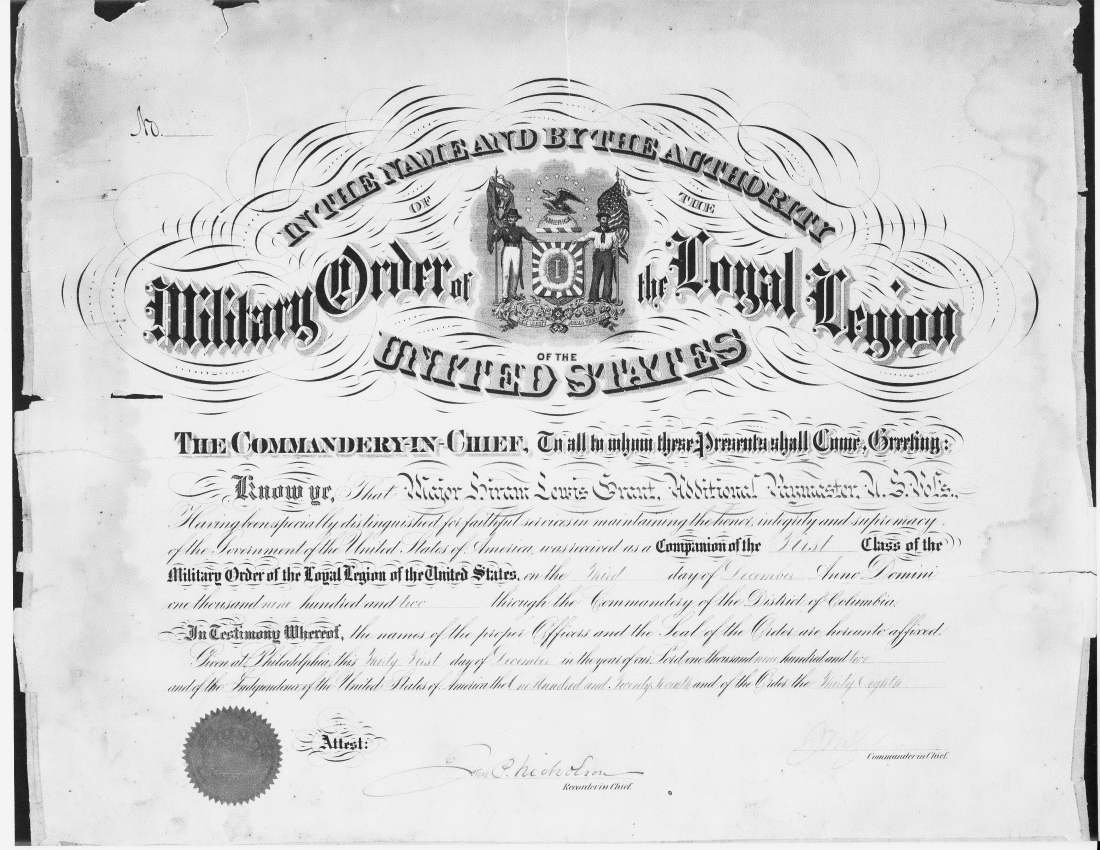 No.
IN THE NAME AND BY THE AUTHORITY
OF THE
AMERICA
Military Order of the Loyal Legion
OF THE
UNITED STATES
THE COMMANDERY-IN-CHIEF, To all to whom these Presents shall Come, Greeting:
Know ye, That Major Hiram Lewis Grant, Additional Paymaster, U.S. Vols.,
Having been specially distinguished for faithful services in maintaining the honor, integrity and supremacy
of the Government of the United States of America, was received as a Companion of the First Class of the
Military Order of the Loyal Legion of the United States, on the Third day of December Anno Domini
one thousand nine hundred and two through the Commandery of the District of Columbia.
In Testimony Whereof, the names of the proper Officers and the Seal of the Order are hereunto affixed.
Given at Philadelphia, this Thirty First day of December in the year of our Lord one thousand nine hundred and two
and of the Independence of the United States of America the One Hundred and Twenty Seventh and of the Order the Thirty Eighth.
Attest:
Commander in Chief.
Jno. P. Nicholson
Recorder in Chief.